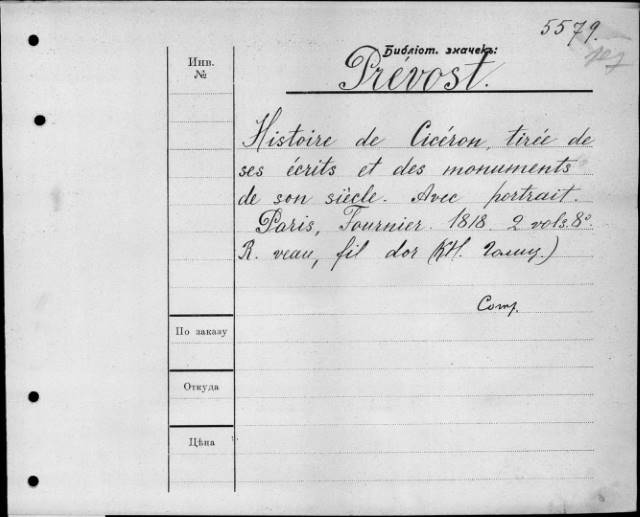 5579.
Библіот. значекъ:
Инв.
№
Prévost.
Histoire de Cicéron, tirée de
ses écrits et des monuments
de son siècle. Avec portrait.
Paris, Fournier. 1818. 2 vols. 8°.
R. veau, fil d'or (КН.
Comp.
По заказу
Откуда
Цѣна